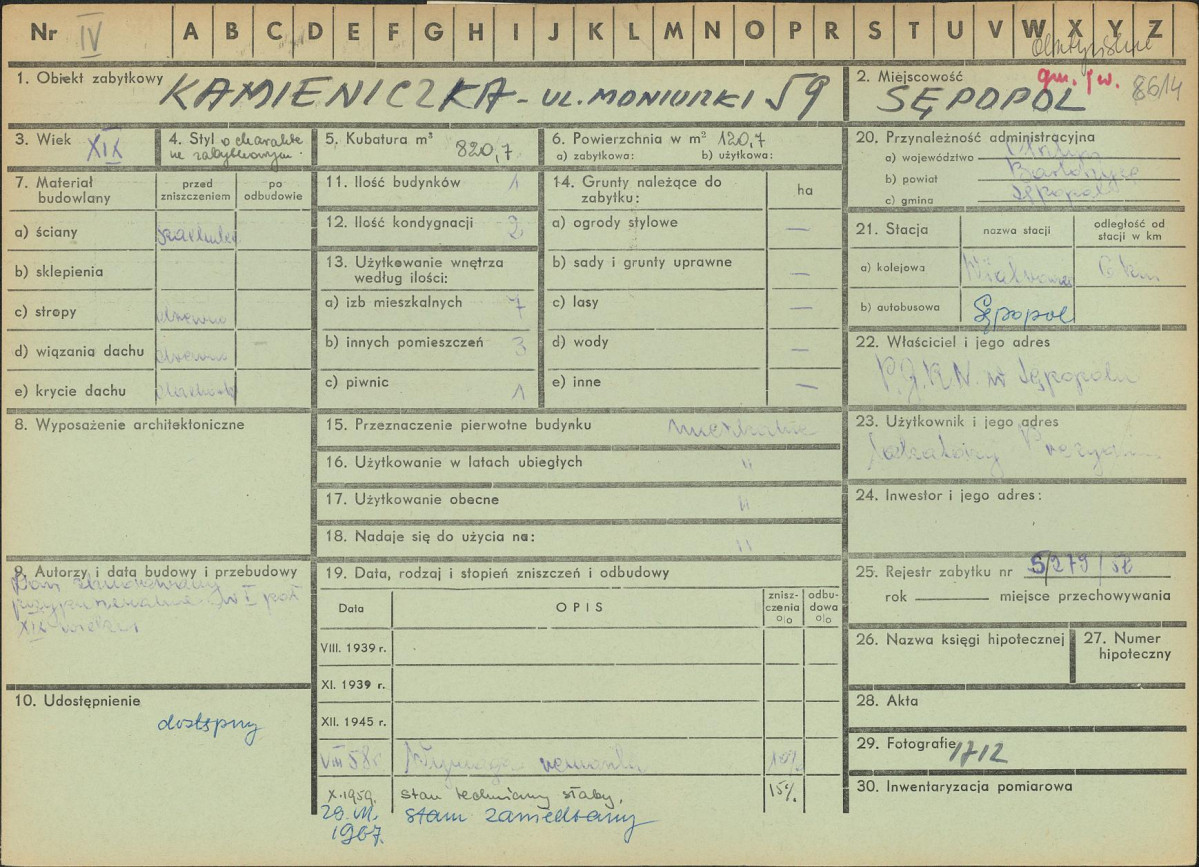 Nr IV A B C D E F G H I J K L M N O P R S T U V W X Y Z
1. Obiekt zabytkowy KAMIENICZKA - UL. MONIUSZKI 59
2. Miejscowość gm. jw. 8614
SĘPOPOL
3. Wiek XIX
4. Styl o charakte
rze zabytkowym
5. Kubatura m³ 820,7
6. Powierzchnia w m² 120,7
a) zabytkowa: b) użytkowa:
7. Materiał budowlany
przed zniszczeniem
po odbudowie
a) ściany
b) sklepienia
c) stropy drewno
d) wiązania dachu drewno
e) krycie dachu
8. Wyposażenie architektoniczne
9. Autorzy i data budowy i przebudowy
Dom zbudowany
przypuszczalnie w I poł
XIX wieku
10. Udostępnienie
dostępny
11. Ilość budynków 1
12. Ilość kondygnacji 2
13. Użytkowanie wnętrza
według ilości:
a) izb mieszkalnych 7
b) innych pomieszczeń 3
c) piwnic 1
14. Grunty należące do
zabytku:
ha
a) ogrody stylowe —
b) sady i grunty uprawne —
c) lasy —
d) wody —
e) inne —
15. Przeznaczenie pierwotne budynku mieszkalne
16. Użytkowanie w latach ubiegłych "
17. Użytkowanie obecne "
18. Nadaje się do użycia na: "
19. Data, rodzaj i stopień zniszczeń i odbudowy
Data OPIS znisz-
czenia
%
odbu-
dowa
%
VIII. 1939 r.
XI. 1939 r.
XII. 1945 r.
VIII 58r Wymaga remontu 10%
X.1959. stan techniczny słaby. 15%
1967. stan zaniedbany
20. Przynależność administracyjna
a) województwo Olsztyn
b) powiat Bartoszyce
c) gmina Sępopol
21. Stacja
nazwa stacji
odległość od
stacji w km
a) kolejowa 6 km
b) autobusowa Sępopol
22. Właściciel i jego adres
P.M.R.N. w Sępopolu
23. Użytkownik i jego adres
24. Inwestor i jego adres:
25. Rejestr zabytku nr
rok miejsce przechowywania
26. Nazwa księgi hipotecznej
27. Numer
hipoteczny
28. Akta
29. Fotografie 1712
30. Inwentaryzacja pomiarowa